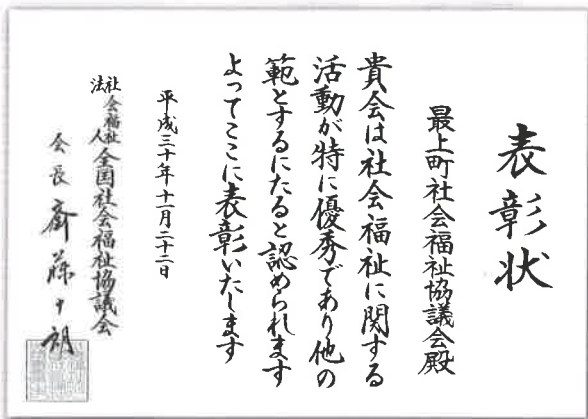 表彰状
最上町社会福祉協議会殿
貴会は社会福祉に関する
活動が特に優秀であり他の
範とするにたると認められます
よってここに表彰いたします
平成三十年十一月二十二日
社会福祉法人全国社会福祉協議会
会長斎藤十朗